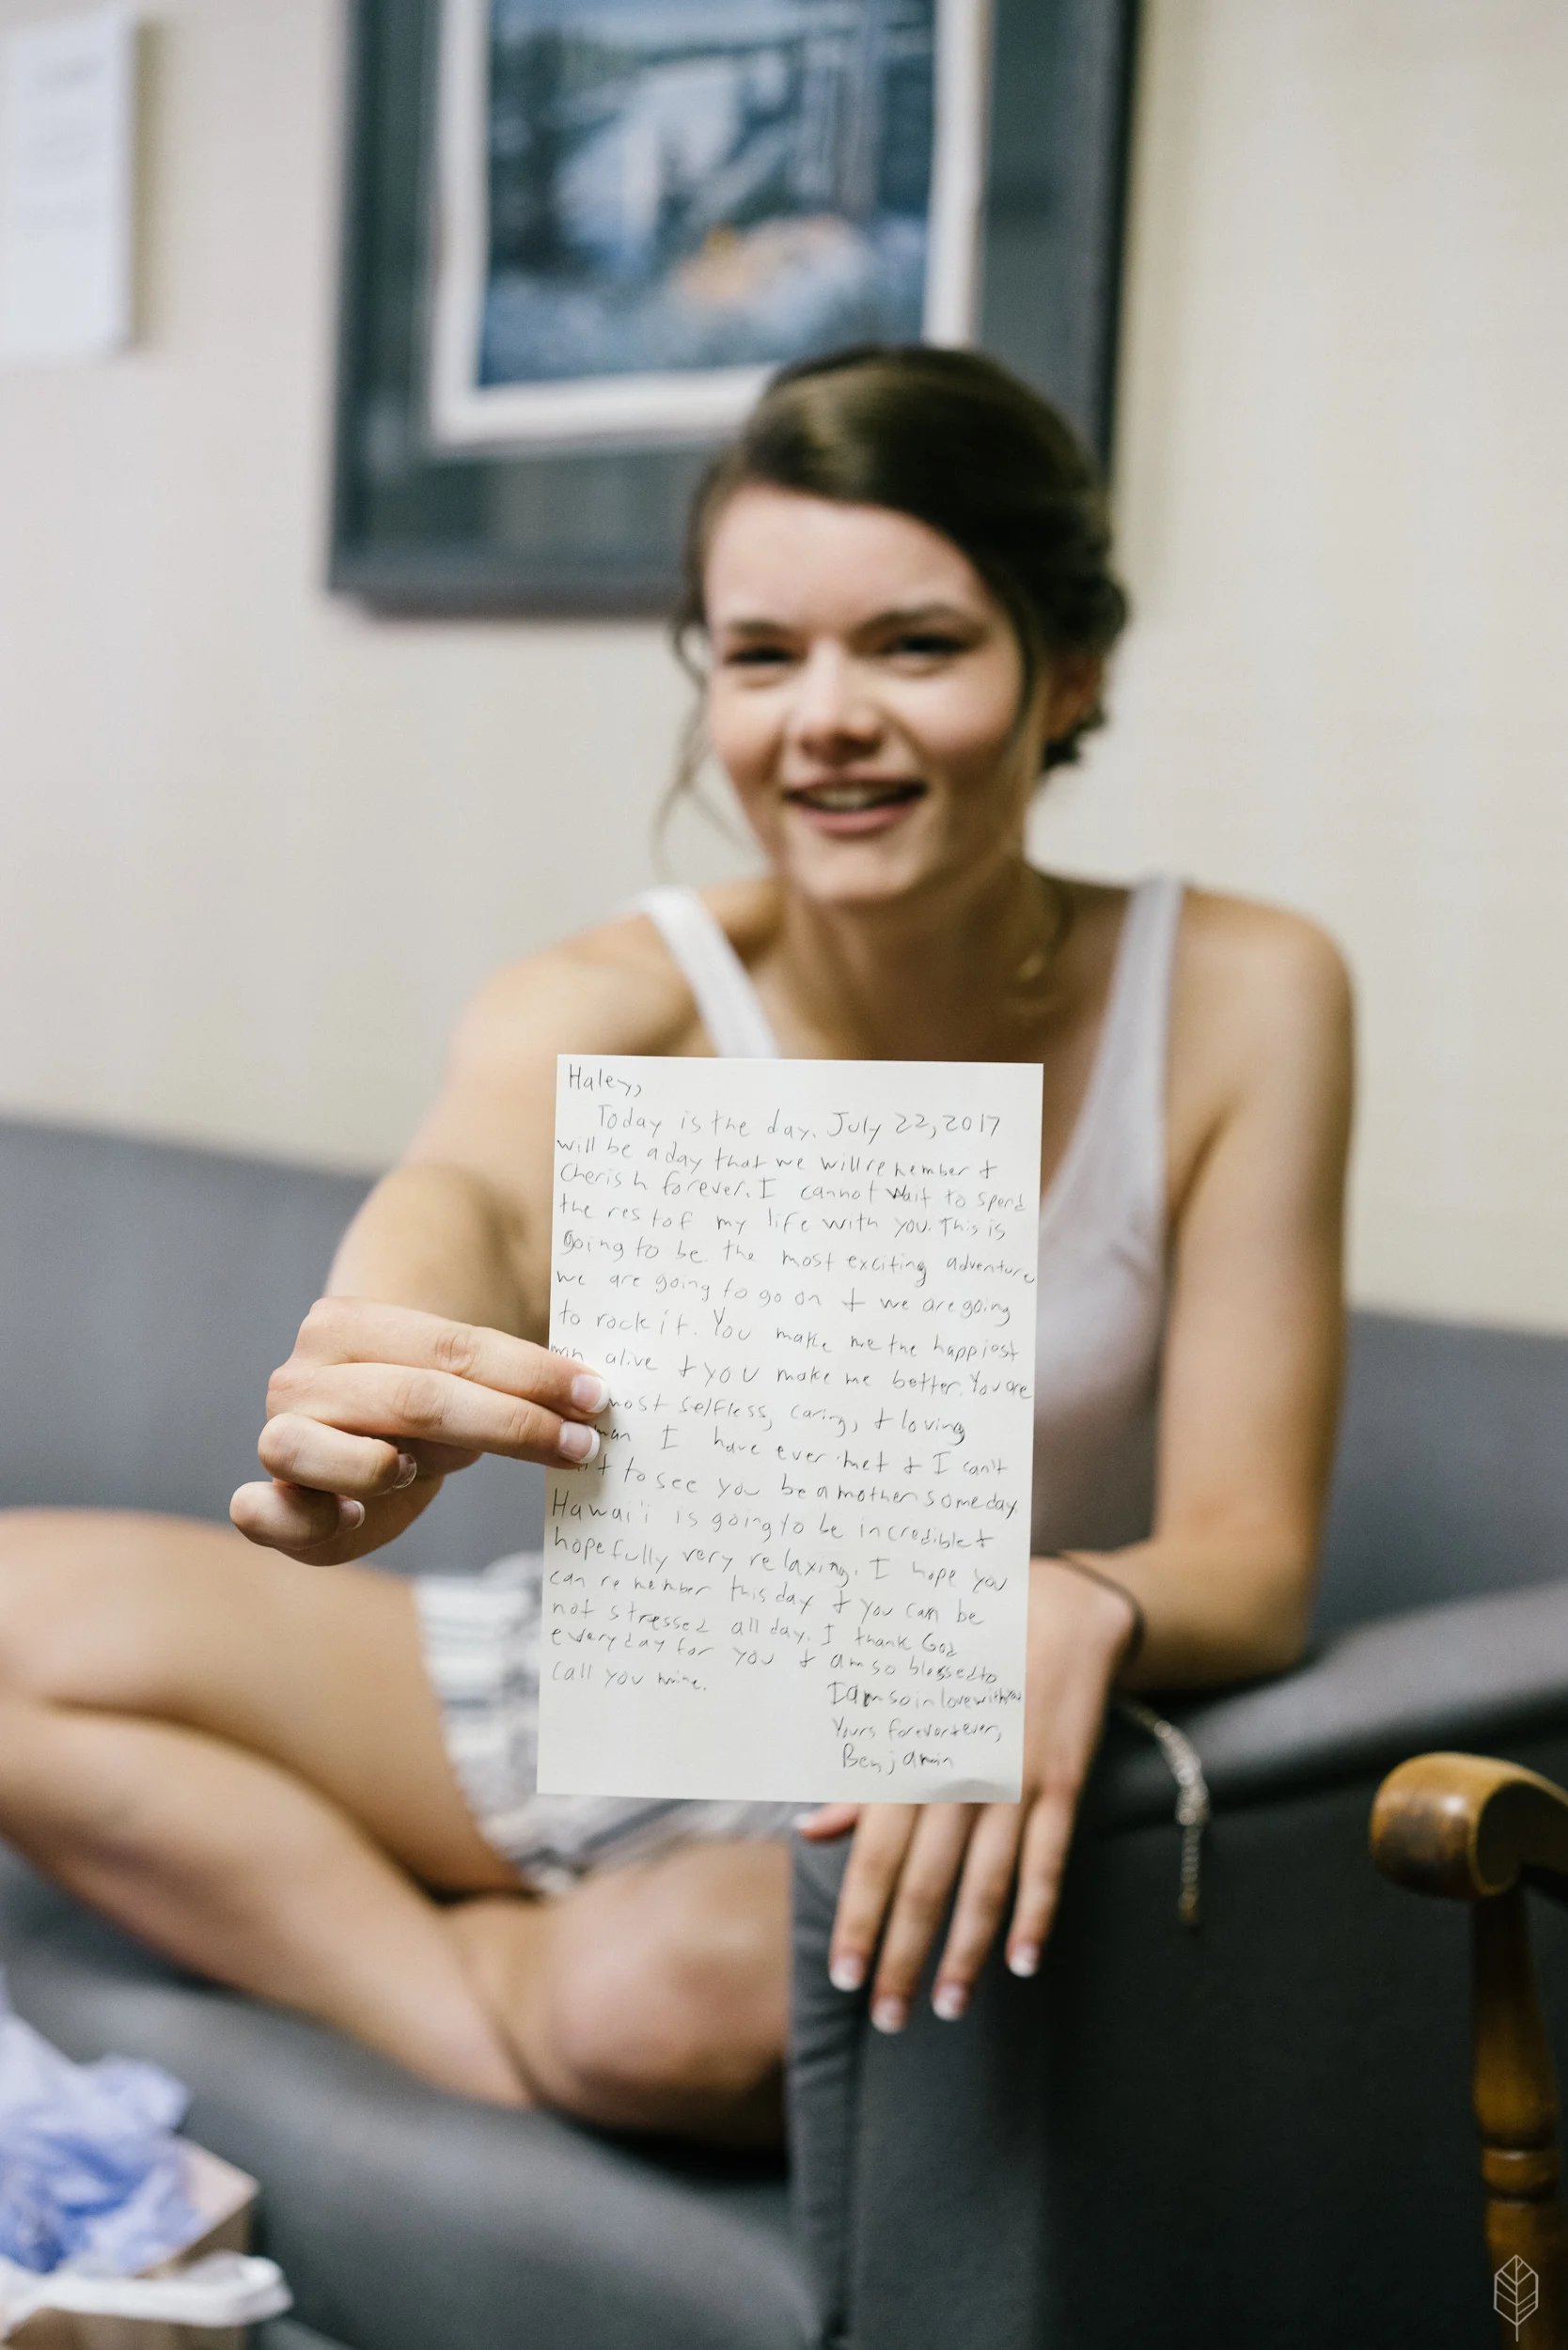 Haley,
Today is the day. July 22, 2017
will be a day that we will remember +
cherish forever. I cannot wait to spend
the rest of my life with you. This is
going to be the most exciting adventure
we are going to go on + we are going
to rock it. You make me the happiest
man alive + you make me better. You are
most selfless, caring, + loving
I have ever met + I can't
to see you be a mother someday.
Hawai'i is going to be incredible +
hopefully very relaxing. I hope you
can remember this day + you can be
not stressed all day. I thank God
everyday for you + am so blessed to
call you mine.
I am so in love with you
Yours forever + ever,
Benjamin